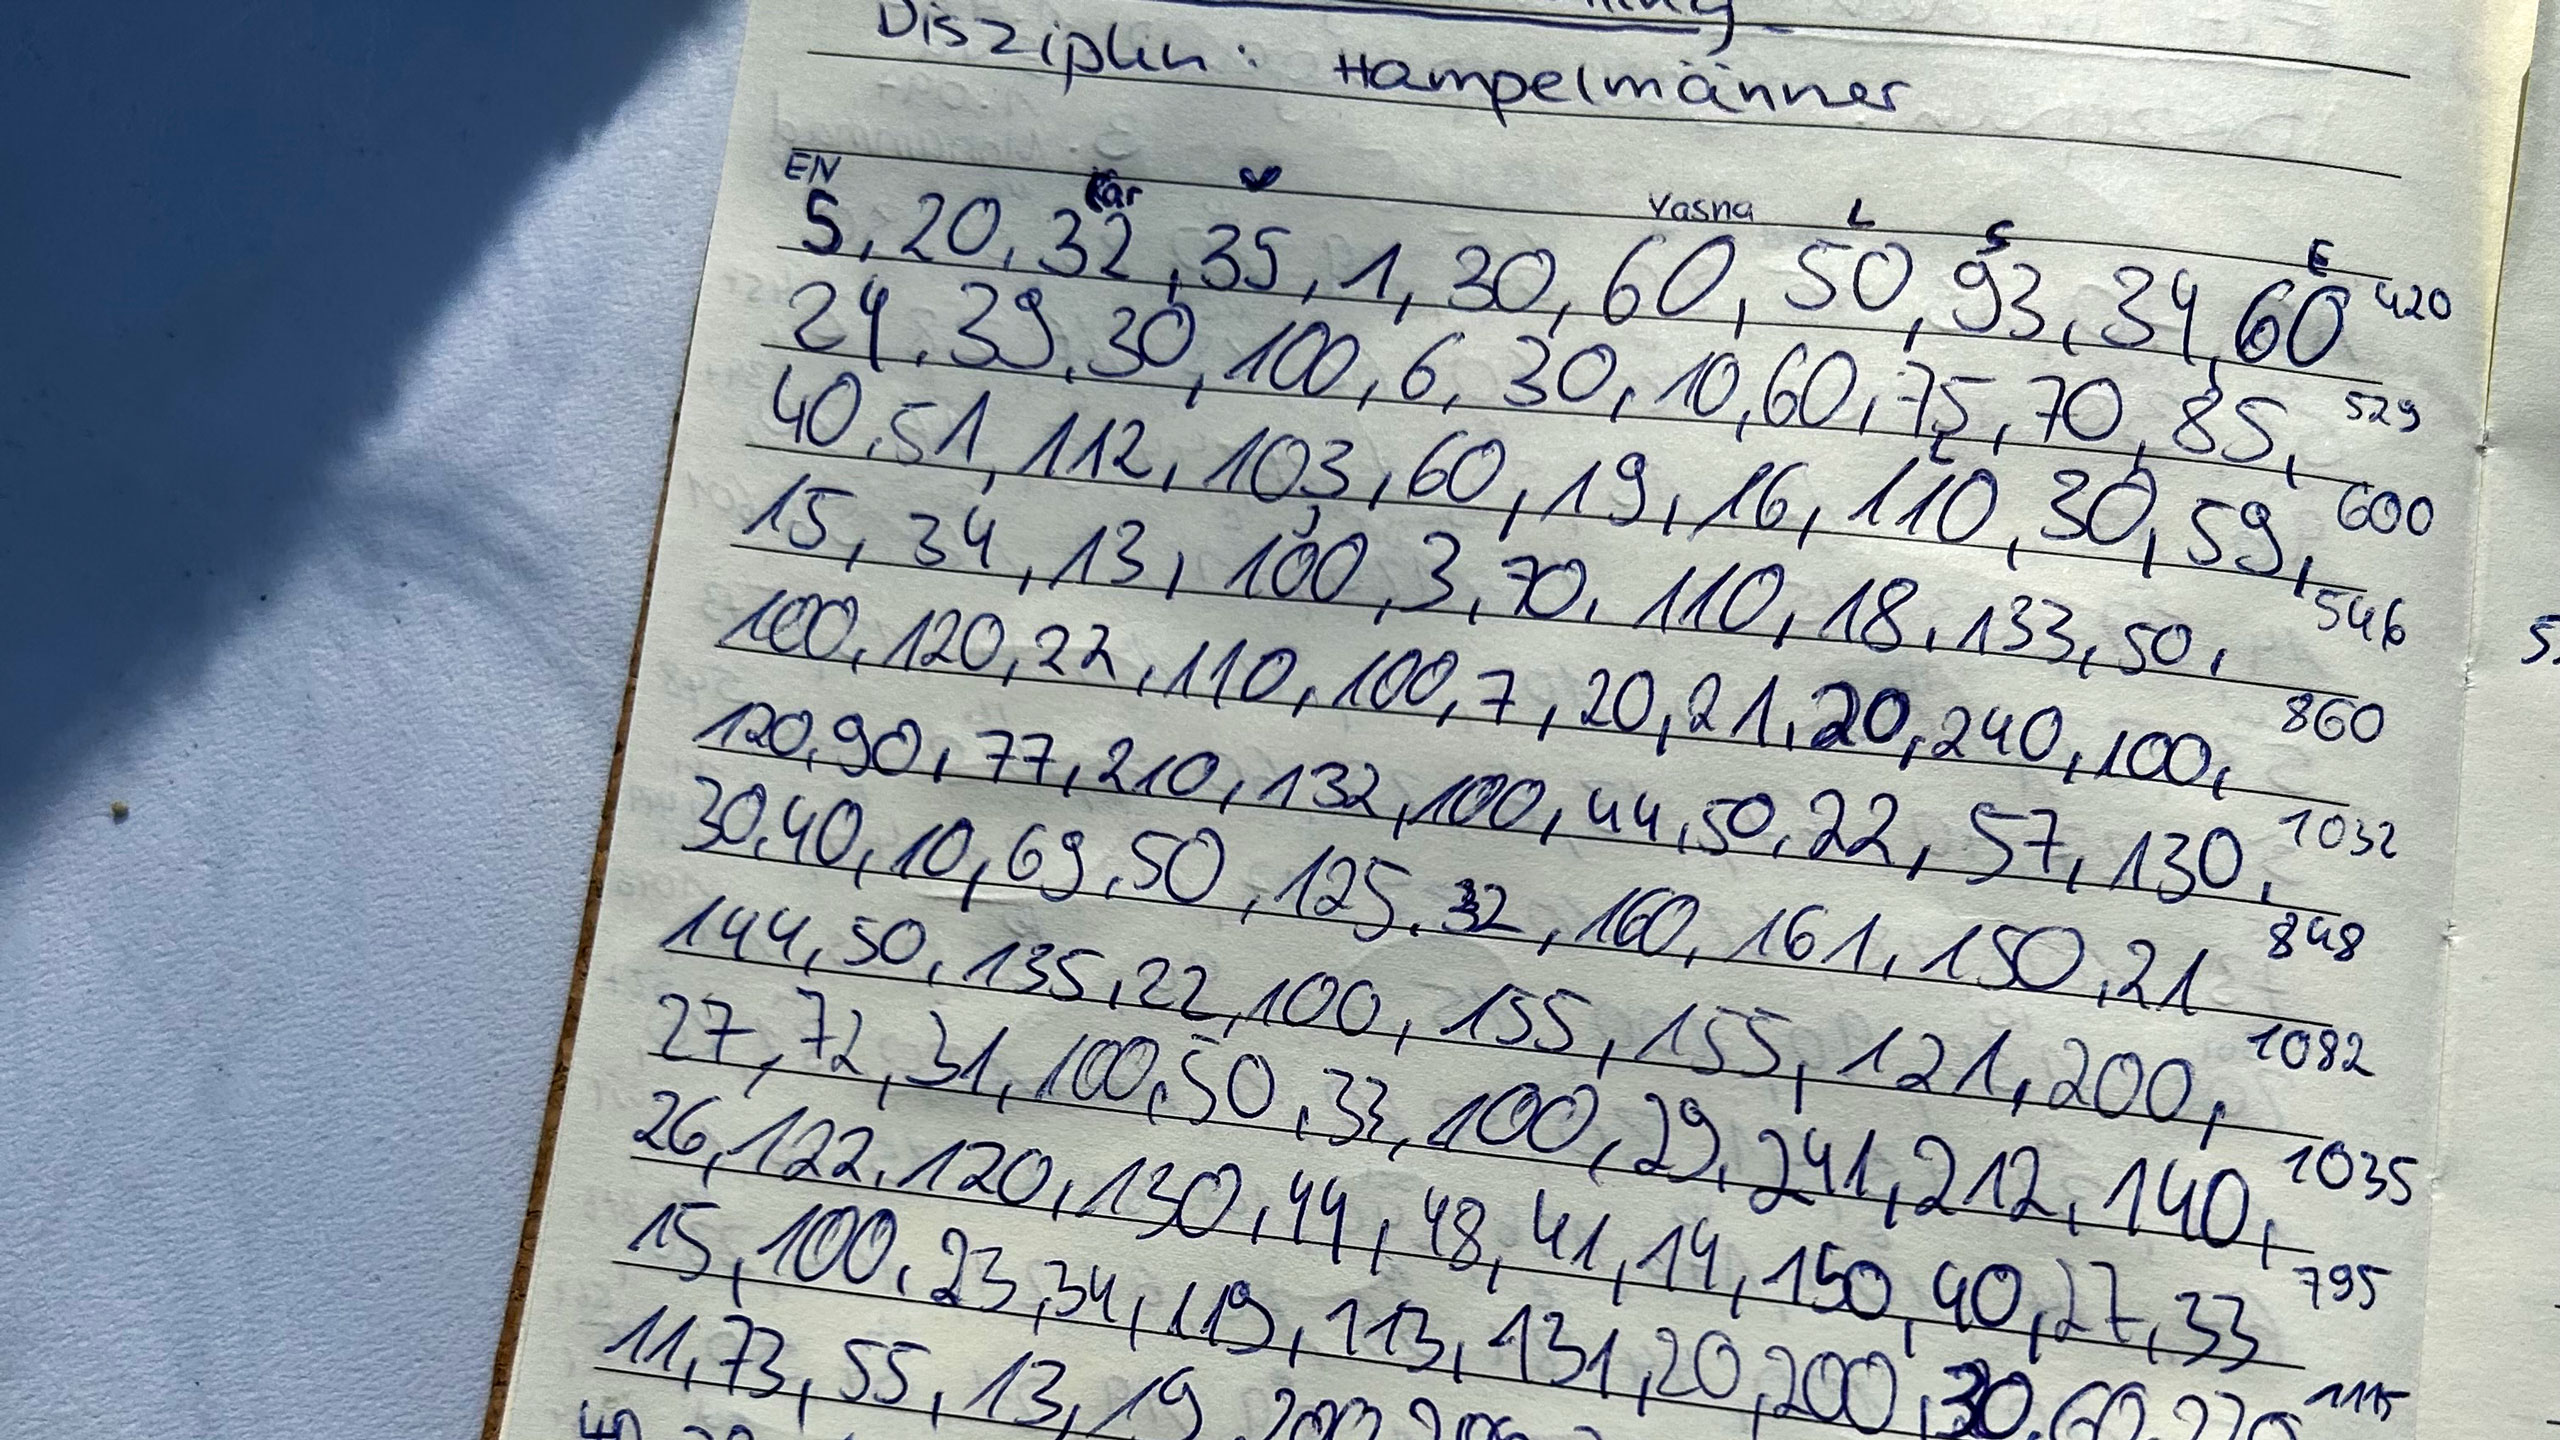 Disziplin: Hampelmänner
EN Kar Yasna L S E
5, 20, 32, 35, 1, 30, 60, 50, 93, 34, 60 420
24, 39, 30, 100, 6, 30, 10, 60, 75, 70, 85, 529
40, 51, 112, 103, 60, 19, 16, 110, 30, 59, 600
15, 34, 13, 100, 3, 70, 110, 18, 133, 50, 546
100, 120, 22, 110, 100, 7, 20, 21, 20, 240, 100, 860
120, 90, 77, 210, 132, 100, 44, 50, 22, 57, 130, 1032
30, 40, 10, 69, 50, 125, 32, 160, 161, 150, 21 848
144, 50, 135, 22, 100, 155, 155, 121, 200, 1082
27, 72, 31, 100, 50, 33, 100, 29, 241, 212, 140, 1035
26, 122, 120, 130, 44, 48, 41, 14, 150, 40, 27, 33 795
15, 100, 23, 34, 119, 113, 131, 20, 200, 30, 60, 270 1115
11, 73, 55, 13, 19